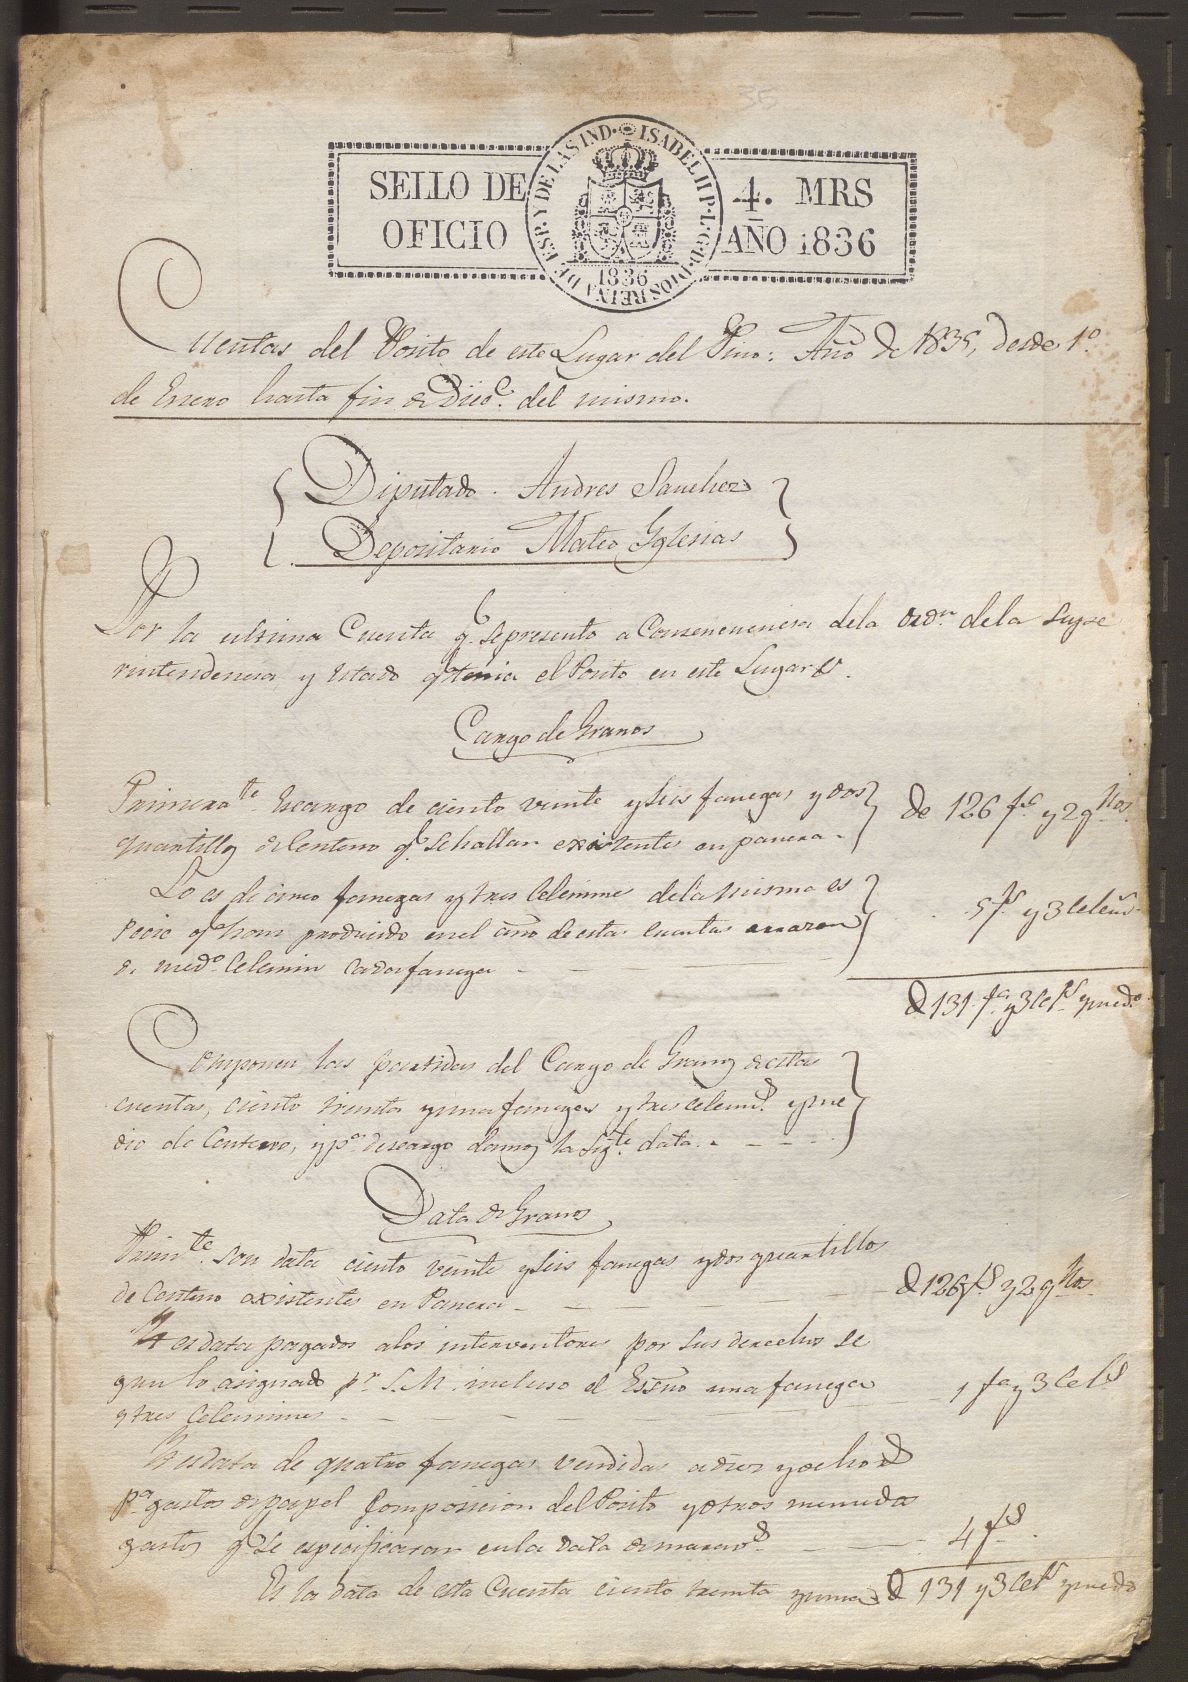 35
SELLO DE
OFICIO
ISABEL II P. L. G. D. DIOS REINA DE ESP. Y DE LAS IND.
1836
4. MRS
AÑO 1836
Cuentas del Posito de este Lugar del Pino: Año de 1835, desde 1.º
de Enero hasta fin de Dice. del mismo.
Diputado. Andres Sanchez
Depositario Mateo Yglesias
Por la ultima Cuenta q.e se presento a Consecuencia dela ordn. dela Supe
rintendencia, y estado q.e tenia el Posito en este Lugar
Cargo de Granos
Primeramte. es cargo de ciento veinte y seis fanegas y dos
quartillos de Centeno q.e se hallan existentes en panera. de 126 fs. y 2 qtllos.
Lo es de cinco fanegas y tres Celemines dela misma es
pecie q.e han producido en el año de estas cuentas a razon 5 fs. y 3 Celems.
de medo. Celemin cada fanega
d 131 fas. y 3 Cels. y medo.
Componen las partidas del Cargo de Granos de estas
cuentas, ciento treinta y una fanegas y tres celems. y me
dio de Centeno, y pa. descargo damos la sigte. data.
Data de Granos
Primte. son data ciento veinte y seis fanegas y dos quartillos
de Centeno existentes en Panera d 126 fs. y 2 qtllos.
Yt es data pagados alos interventores por sus derechos se
gun lo asignado pr. S. M. incluso el Essno una fanega
y tres Celemines 1 fa. y 3 Cels.
Yt es data de quatro fanegas vendidas a diez y ocho rs.
pa. gastos de papel Composicion del Posito y otros menudos
gastos q.e se especificaran en la data de maravs. 4 fs.
Es la data de esta Cuenta ciento treinta y una d 131 y 3 Cels. y medo